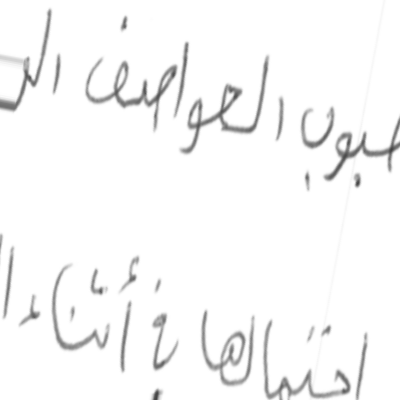 هبوب العواصف الر
احتمالها في أثناء ا